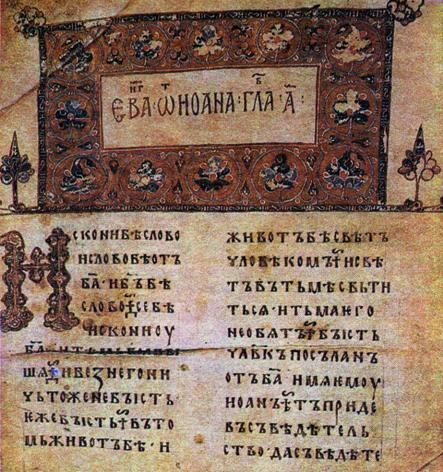 ЕВА Ѿ ИОАНА · ГЛА · А҃ :
ИСКОНИБѢСЛОВО
ИСЛОВОБѢОТЪ
БА҃ · ИБ҃ЪБѢ
СЛОВО СЕБѢ
ИСКОНИОУ
БА҃
ШѦ ИБЕЗНЕГОНИ
ЧЬТОЖЕНЕБЫСТЬ
ЕЖЕБЫСТЬ ВЪТО
МЬЖИВОТЪБѢ · И
ЖИВОТЪБѢСВѢТЪ
ЧЛОВѢКОМЪ ИСВѢ
ТЪВЪТЬМѢСВЬТИ
ТЬСѦ · ИТЬМАѤГО
НЕОБѦТЪ БЫСТЬ
ЧЛ҃ВКЪПОСЪЛАНЪ
ОТЪБА҃ ИМѦѤМОУ
ИОАНЪ ТЪПРИДЕ
ВЪСЪВѢДѢТЕЛЬ
СТВО ДАСЪВѢДѢТЕ